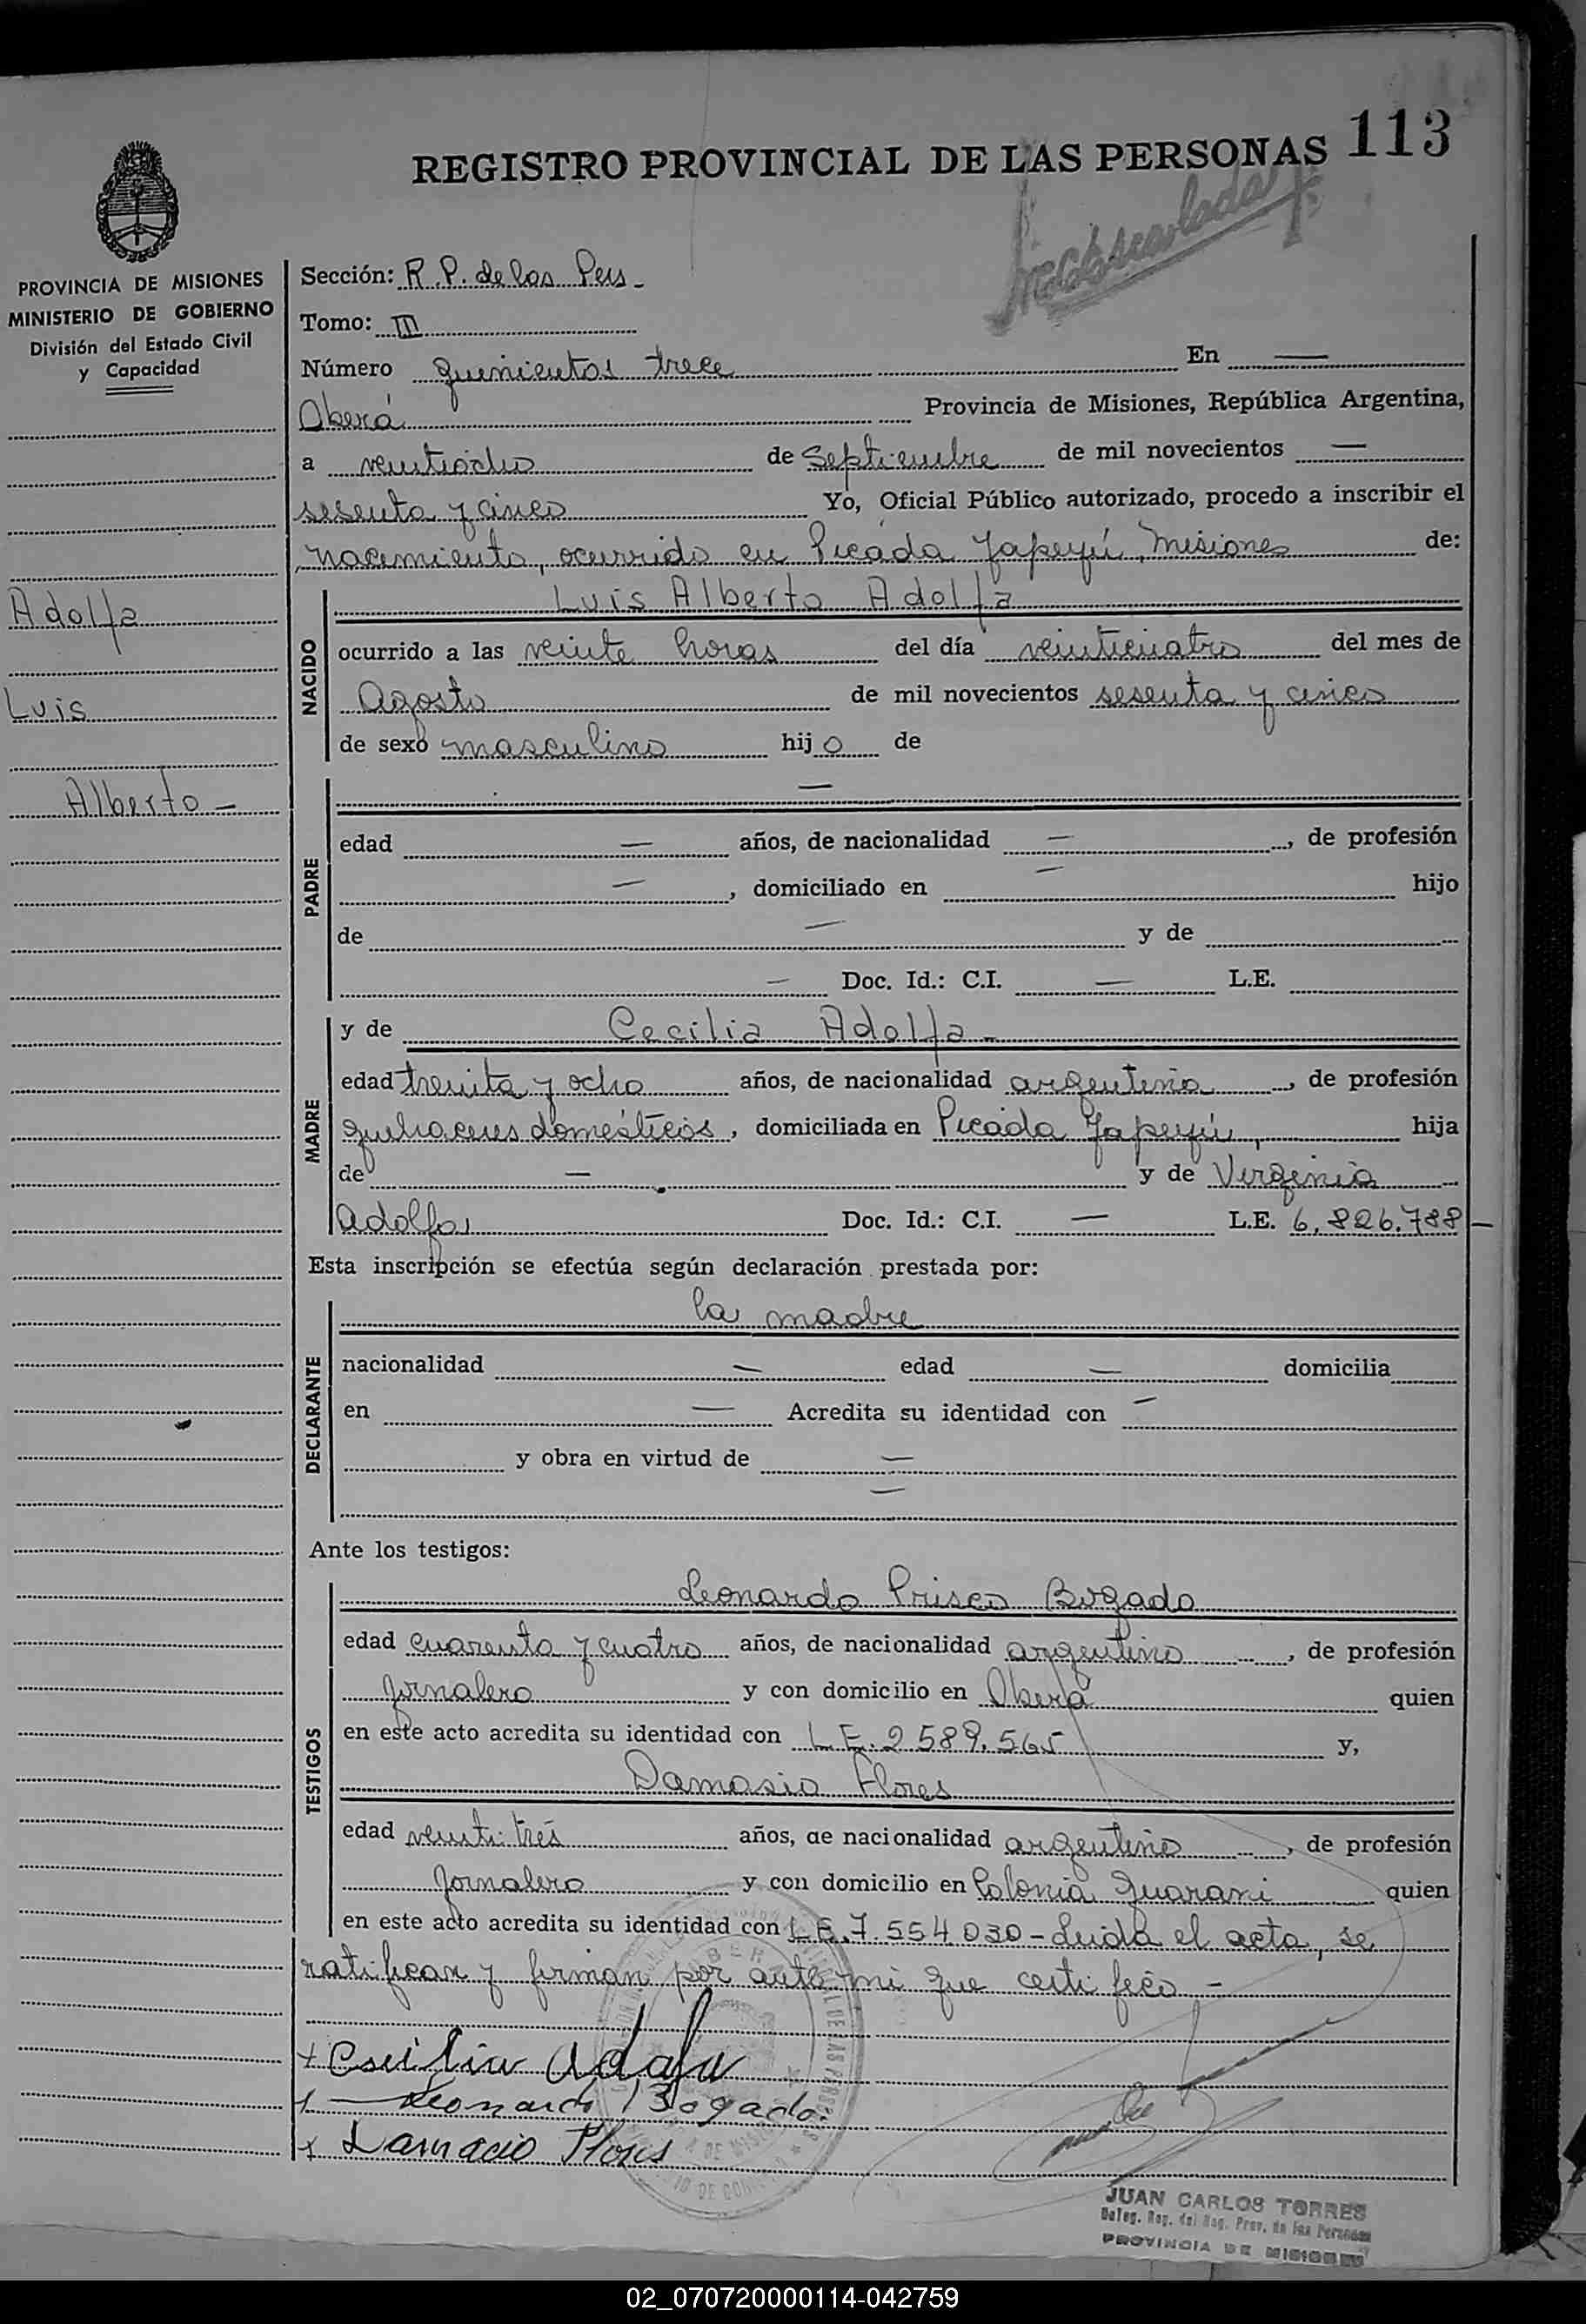 REGISTRO PROVINCIAL DE LAS PERSONAS 113
PROVINCIA DE MISIONES
MINISTERIO DE GOBIERNO
División del Estado Civil
y Capacidad
Adolfa
Luis
Alberto -
Sección: R.P. de las Pers -
Tomo: III
Número quinientos trece En —
Oberá Provincia de Misiones, República Argentina,
a veintiocho de Septiembre de mil novecientos —
sesenta y cinco Yo, Oficial Público autorizado, procedo a inscribir el
nacimiento, ocurrido en Picada Yapeyú, Misiones de:
NACIDO
Luis Alberto Adolfa
ocurrido a las veinte horas del día veinticuatro del mes de
Agosto de mil novecientos sesenta y cinco
de sexo masculino hijo de
PADRE
—
edad — años, de nacionalidad —, de profesión
—, domiciliado en — hijo
de — y de
— Doc. Id.: C.I. — L.E.
MADRE
y de Cecilia Adolfa -
edad treinta y ocho años, de nacionalidad argentina, de profesión
quehaceres domésticos, domiciliada en Picada Yapeyú, hija
de — y de Virginia
Adolfa Doc. Id.: C.I. — L.E. 6.826.788 —
Esta inscripción se efectúa según declaración prestada por:
DECLARANTE
la madre
nacionalidad — edad — domicilia
en — Acredita su identidad con —
y obra en virtud de —
—
Ante los testigos:
TESTIGOS
Leonardo Prisco Bogado
edad cuarenta y cuatro años, de nacionalidad argentino, de profesión
Jornalero y con domicilio en Oberá quien
en este acto acredita su identidad con L.E. 2.589.565 y,
Damasio Flores
edad veinti tres años, de nacionalidad argentino, de profesión
Jornalero y con domicilio en Colonia Guarani quien
en este acto acredita su identidad con L.E. 7.554.030 - Leida el acta, se
ratifican y firman por ante mi que certi fico -
+ Cecilia Adolfa
+ Leonardo Bogado
+ Damacio Flores
JUAN CARLOS TORRES
Deleg. Reg. del Reg. Prov. de las Personas
PROVINCIA DE MISIONES
02_070720000114-042759